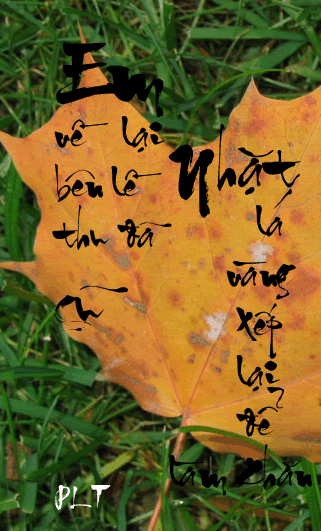 Em
về lại
bên lề
thu đã
cũ
Nhặt
lá
vàng
xếp
lại
để
tâm
PLT